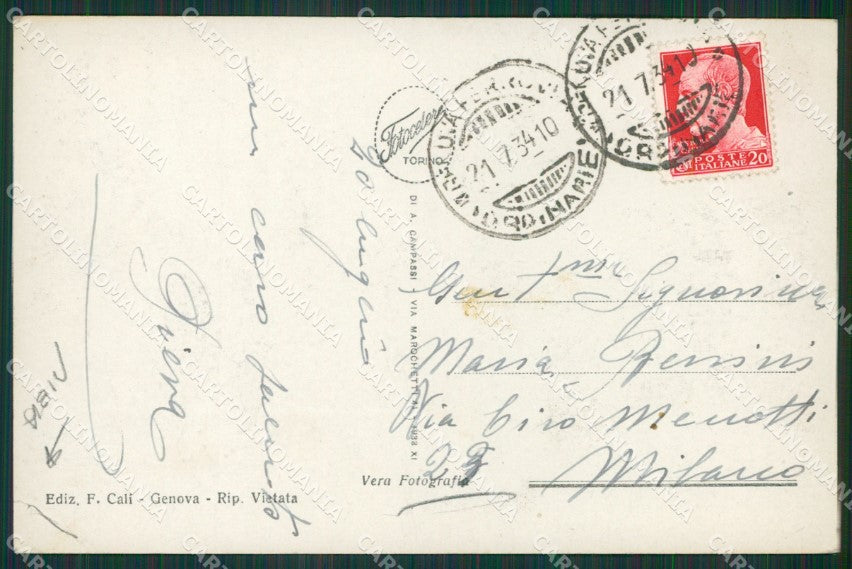 20 luglio
un caro saluto
Piera
Gen.ma Signorina
Maria Persini
Via Ciro Menotti
23
Milano
Fotocelere
TORINO
DI A. CAMPASSI - VIA MAROCHETTI 41 - 1933 XI
Vera Fotografia
Ediz. F. Calì - Genova - Rip. Vietata
21 7 34 10
ORDINARIE
21 7 34 10
ORDINARIE
POSTE
ITALIANE
20
CARTOLINOMANIA